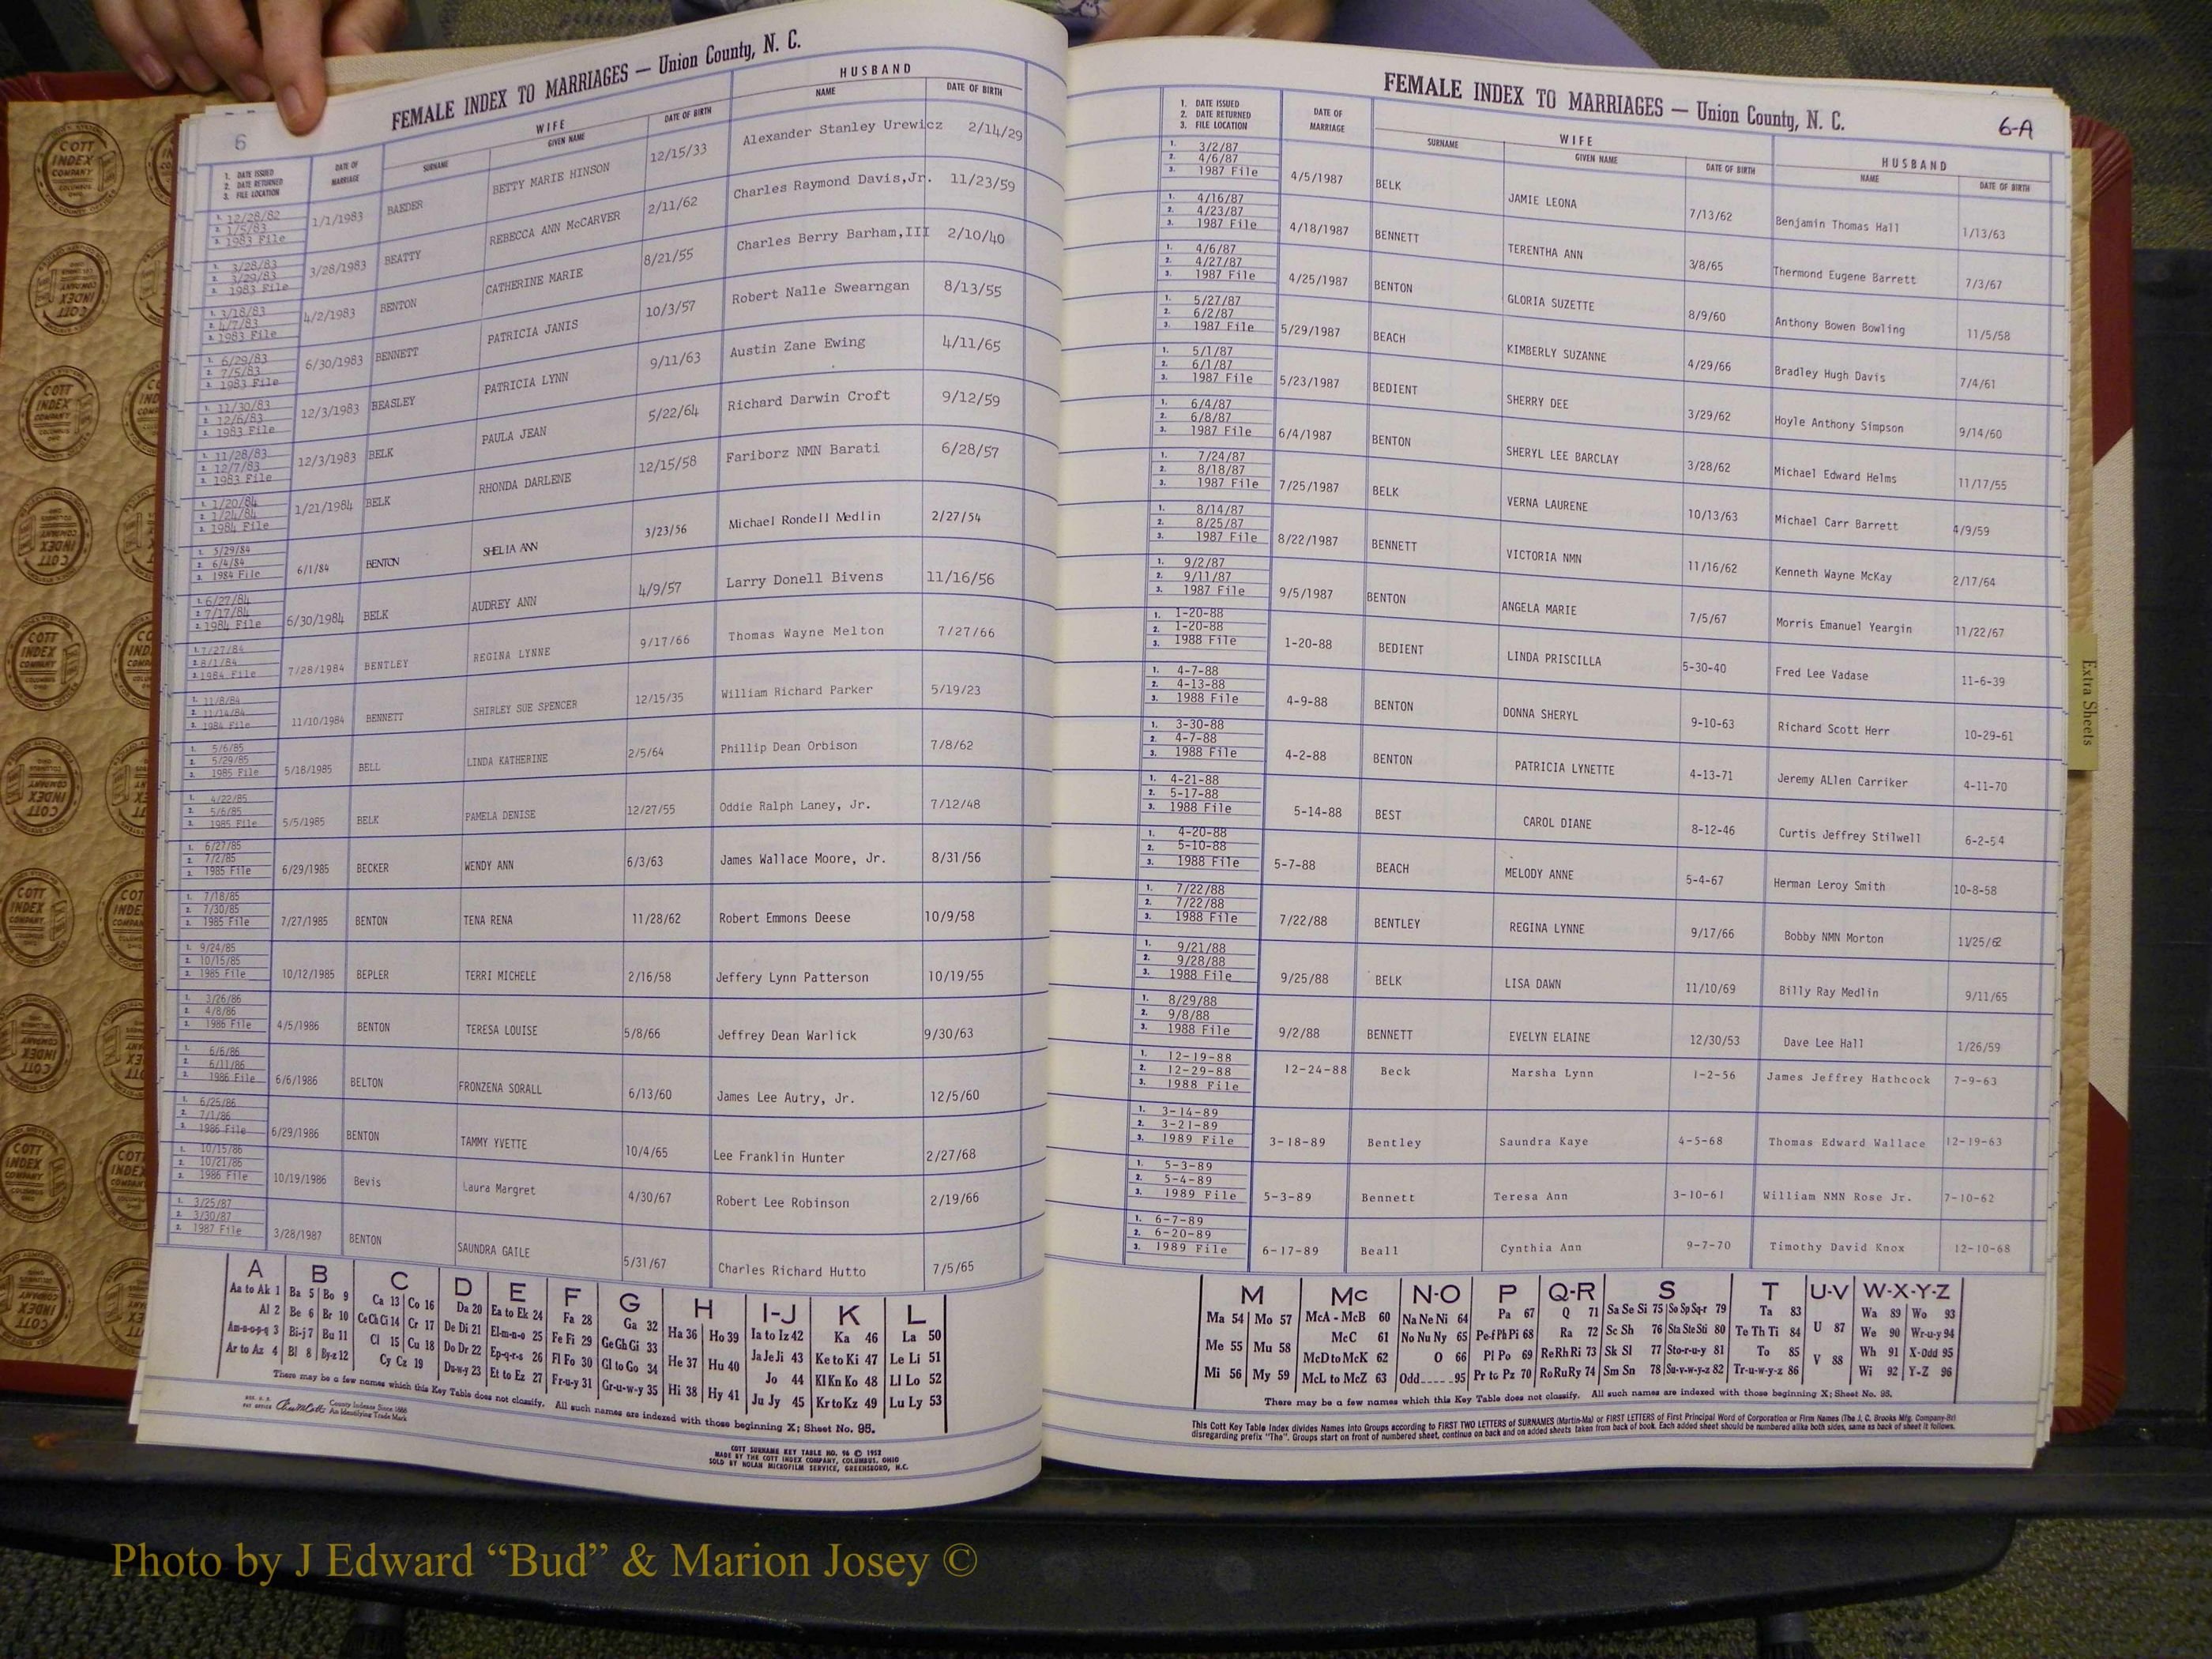 FEMALE INDEX TO MARRIAGES — Union County, N. C.
6
WIFE
HUSBAND
1. DATE ISSUED
2. DATE RETURNED
3. FILE LOCATION
DATE OF MARRIAGE
SURNAME
GIVEN NAME
DATE OF BIRTH
NAME
DATE OF BIRTH
1. 12/28/82
2. 1/5/83
3. 1983 File
1/1/1983 BAEDER BETTY MARIE HINSON 12/15/33 Alexander Stanley Urewicz 2/14/29
1. 3/28/83
2. 3/29/83
3. 1983 File
3/28/1983 BEATTY REBECCA ANN McCARVER 2/11/62 Charles Raymond Davis,Jr. 11/23/59
1. 3/18/83
2. 4/7/83
3. 1983 File
4/2/1983 BENTON CATHERINE MARIE 8/21/55 Charles Berry Barham,III 2/10/40
1. 6/29/83
2. 7/5/83
3. 1983 File
6/30/1983 BENNETT PATRICIA JANIS 10/3/57 Robert Nalle Swearngan 8/13/55
1. 11/30/83
2. 12/6/83
3. 1983 File
12/3/1983 BEASLEY PATRICIA LYNN 9/11/63 Austin Zane Ewing 4/11/65
1. 11/28/83
2. 12/7/83
3. 1983 File
12/3/1983 BELK PAULA JEAN 5/22/64 Richard Darwin Croft 9/12/59
1. 1/20/84
2. 1/24/84
3. 1984 File
1/21/1984 BELK RHONDA DARLENE 12/15/58 Fariborz NMN Barati 6/28/57
1. 5/29/84
2. 6/4/84
3. 1984 File
6/1/84 BENTON SHELIA ANN 3/23/56 Michael Rondell Medlin 2/27/54
1. 6/27/84
2. 7/17/84
3. 1984 File
6/30/1984 BELK AUDREY ANN 4/9/57 Larry Donell Bivens 11/16/56
1. 7/27/84
2. 8/1/84
3. 1984 File
7/28/1984 BENTLEY REGINA LYNNE 9/17/66 Thomas Wayne Melton 7/27/66
1. 11/8/84
2. 11/14/84
3. 1984 File
11/10/1984 BENNETT SHIRLEY SUE SPENCER 12/15/35 William Richard Parker 5/19/23
1. 5/6/85
2. 5/29/85
3. 1985 File
5/18/1985 BELL LINDA KATHERINE 2/5/64 Phillip Dean Orbison 7/8/62
1. 4/22/85
2. 5/6/85
3. 1985 File
5/5/1985 BELK PAMELA DENISE 12/27/55 Oddie Ralph Laney, Jr. 7/12/48
1. 6/27/85
2. 7/2/85
3. 1985 File
6/29/1985 BECKER WENDY ANN 6/3/63 James Wallace Moore, Jr. 8/31/56
1. 7/18/85
2. 7/30/85
3. 1985 File
7/27/1985 BENTON TENA RENA 11/28/62 Robert Emmons Deese 10/9/58
1. 9/24/85
2. 10/15/85
3. 1985 File
10/12/1985 BEPLER TERRI MICHELE 2/16/58 Jeffery Lynn Patterson 10/19/55
1. 3/26/86
2. 4/8/86
3. 1986 File
4/5/1986 BENTON TERESA LOUISE 5/8/66 Jeffrey Dean Warlick 9/30/63
1. 6/6/86
2. 6/11/86
3. 1986 File
6/6/1986 BELTON FRONZENA SORALL 6/13/60 James Lee Autry, Jr. 12/5/60
1. 6/25/86
2. 7/1/86
3. 1986 File
6/29/1986 BENTON TAMMY YVETTE 10/4/65 Lee Franklin Hunter 2/27/68
1. 10/15/86
2. 10/21/86
3. 1986 File
10/19/1986 Bevis Laura Margret 4/30/67 Robert Lee Robinson 2/19/66
1. 3/25/87
2. 3/30/87
3. 1987 File
3/28/1987 BENTON SAUNDRA GAILE 5/31/67 Charles Richard Hutto 7/5/65
A B C D E F G H I-J K L
Aa to Ak 1 Ba 5 Bo 9 Ca 13 Co 16 Da 20 Ea to Ek 24 Fa 28 Ga 32 Ha 36 Ho 39 Ia to Iz 42 Ka 46 La 50
Al 2 Be 6 Br 10 Ce Ch Ci 14 Cr 17 De Di 21 El-m-n-o 25 Fe Fi 29 Ge Gh Gi 33 He 37 Hu 40 Ja Je Ji 43 Ke to Ki 47 Le Li 51
Am-n-o-p-q 3 Bi-j 7 Bu 11 Cl 15 Cu 18 Do Dr 22 Ep-q-r-s 26 Fl Fo 30 Gl to Go 34 Hi 38 Hy 41 Jo 44 Kl Kn Ko 48 Ll Lo 52
Ar to Az 4 Bl 8 By-z 12 Cy Cz 19 Du-w-y 23 Et to Ez 27 Fr-u-y 31 Gr-u-w-y 35 Ju Jy 45 Kr to Kz 49 Lu Ly 53
There may be a few names which this Key Table does not classify. All such names are indexed with those beginning X; Sheet No. 95.
County Indexes Since 1888
An Identifying Trade Mark
COTT SURNAME KEY TABLE NO. 96 © 1952
MADE BY THE COTT INDEX COMPANY, COLUMBUS, OHIO
SOLD BY NOLAN MICROFILM SERVICE, GREENSBORO, N.C.
FEMALE INDEX TO MARRIAGES — Union County, N. C.
6-A
WIFE
HUSBAND
1. DATE ISSUED
2. DATE RETURNED
3. FILE LOCATION
DATE OF MARRIAGE
SURNAME
GIVEN NAME
DATE OF BIRTH
NAME
DATE OF BIRTH
1. 3/2/87
2. 4/6/87
3. 1987 File
4/5/1987 BELK JAMIE LEONA 7/13/62 Benjamin Thomas Hall 1/13/63
1. 4/16/87
2. 4/23/87
3. 1987 File
4/18/1987 BENNETT TERENTHA ANN 3/8/65 Thermond Eugene Barrett 7/3/67
1. 4/6/87
2. 4/27/87
3. 1987 File
4/25/1987 BENTON GLORIA SUZETTE 8/9/60 Anthony Bowen Bowling 11/5/58
1. 5/27/87
2. 6/2/87
3. 1987 File
5/29/1987 BEACH KIMBERLY SUZANNE 4/29/66 Bradley Hugh Davis 7/4/61
1. 5/1/87
2. 6/1/87
3. 1987 File
5/23/1987 BEDIENT SHERRY DEE 3/29/62 Hoyle Anthony Simpson 9/14/60
1. 6/4/87
2. 6/8/87
3. 1987 File
6/4/1987 BENTON SHERYL LEE BARCLAY 3/28/62 Michael Edward Helms 11/17/55
1. 7/24/87
2. 8/18/87
3. 1987 File
7/25/1987 BELK VERNA LAURENE 10/13/63 Michael Carr Barrett 4/9/59
1. 8/14/87
2. 8/25/87
3. 1987 File
8/22/1987 BENNETT VICTORIA NMN 11/16/62 Kenneth Wayne McKay 2/17/64
1. 9/2/87
2. 9/11/87
3. 1987 File
9/5/1987 BENTON ANGELA MARIE 7/5/67 Morris Emanuel Yeargin 11/22/67
1. 1-20-88
2. 1-20-88
3. 1988 File
1-20-88 BEDIENT LINDA PRISCILLA 5-30-40 Fred Lee Vadase 11-6-39
1. 4-7-88
2. 4-13-88
3. 1988 File
4-9-88 BENTON DONNA SHERYL 9-10-63 Richard Scott Herr 10-29-61
1. 3-30-88
2. 4-7-88
3. 1988 File
4-2-88 BENTON PATRICIA LYNETTE 4-13-71 Jeremy ALlen Carriker 4-11-70
1. 4-21-88
2. 5-17-88
3. 1988 File
5-14-88 BEST CAROL DIANE 8-12-46 Curtis Jeffrey Stilwell 6-2-54
1. 4-20-88
2. 5-10-88
3. 1988 File
5-7-88 BEACH MELODY ANNE 5-4-67 Herman Leroy Smith 10-8-58
1. 7/22/88
2. 7/22/88
3. 1988 File
7/22/88 BENTLEY REGINA LYNNE 9/17/66 Bobby NMN Morton 11/25/62
1. 9/21/88
2. 9/28/88
3. 1988 File
9/25/88 BELK LISA DAWN 11/10/69 Billy Ray Medlin 9/11/65
1. 8/29/88
2. 9/8/88
3. 1988 File
9/2/88 BENNETT EVELYN ELAINE 12/30/53 Dave Lee Hall 1/26/59
1. 12-19-88
2. 12-29-88
3. 1988 File
12-24-88 Beck Marsha Lynn 1-2-56 James Jeffrey Hathcock 7-9-63
1. 3-14-89
2. 3-21-89
3. 1989 File
3-18-89 Bentley Saundra Kaye 4-5-68 Thomas Edward Wallace 12-19-63
1. 5-3-89
2. 5-4-89
3. 1989 File
5-3-89 Bennett Teresa Ann 3-10-61 William NMN Rose Jr. 7-10-62
1. 6-7-89
2. 6-20-89
3. 1989 File
6-17-89 Beall Cynthia Ann 9-7-70 Timothy David Knox 12-10-68
M Mc N-O P Q-R S T U-V W-X-Y-Z
Ma 54 Mo 57 McA - McB 60 Na Ne Ni 64 Pa 67 Q 71 Sa Se Si 75 So Sp Sq-r 79 Ta 83 U 87 Wa 89 Wo 93
Me 55 Mu 58 McC 61 No Nu Ny 65 Pe-f Ph Pi 68 Ra 72 Sc Sh 76 Sta Ste Sti 80 Te Th Ti 84 V 88 We 90 Wr-u-y 94
Mi 56 My 59 McD to McK 62 O 66 Pl Po 69 Re Rh Ri 73 Sk Sl 77 Sto-r-u-y 81 To 85 Wh 91 X-Odd 95
McL to McZ 63 Odd 95 Pr to Pz 70 Ro Ru Ry 74 Sm Sn 78 Su-v-w-y-z 82 Tr-u-w-y-z 86 Wi 92 Y-Z 96
There may be a few names which this Key Table does not classify. All such names are indexed with those beginning X; Sheet No. 95.
This Cott Key Table Index divides Names into Groups according to FIRST TWO LETTERS of SURNAMES (Martin-Ma) or FIRST LETTERS of First Principal Word of Corporation or Firm Names (The J. C. Brooks Mfg. Company-Br)
disregarding prefix "The". Groups start on front of numbered sheet, continue on back and on added sheets taken from back of book. Each added sheet should be numbered alike both sides, same as back of sheet it follows.
Extra Sheets
COTT
INDEX
COMPANY
Photo by J Edward “Bud” & Marion Josey ©